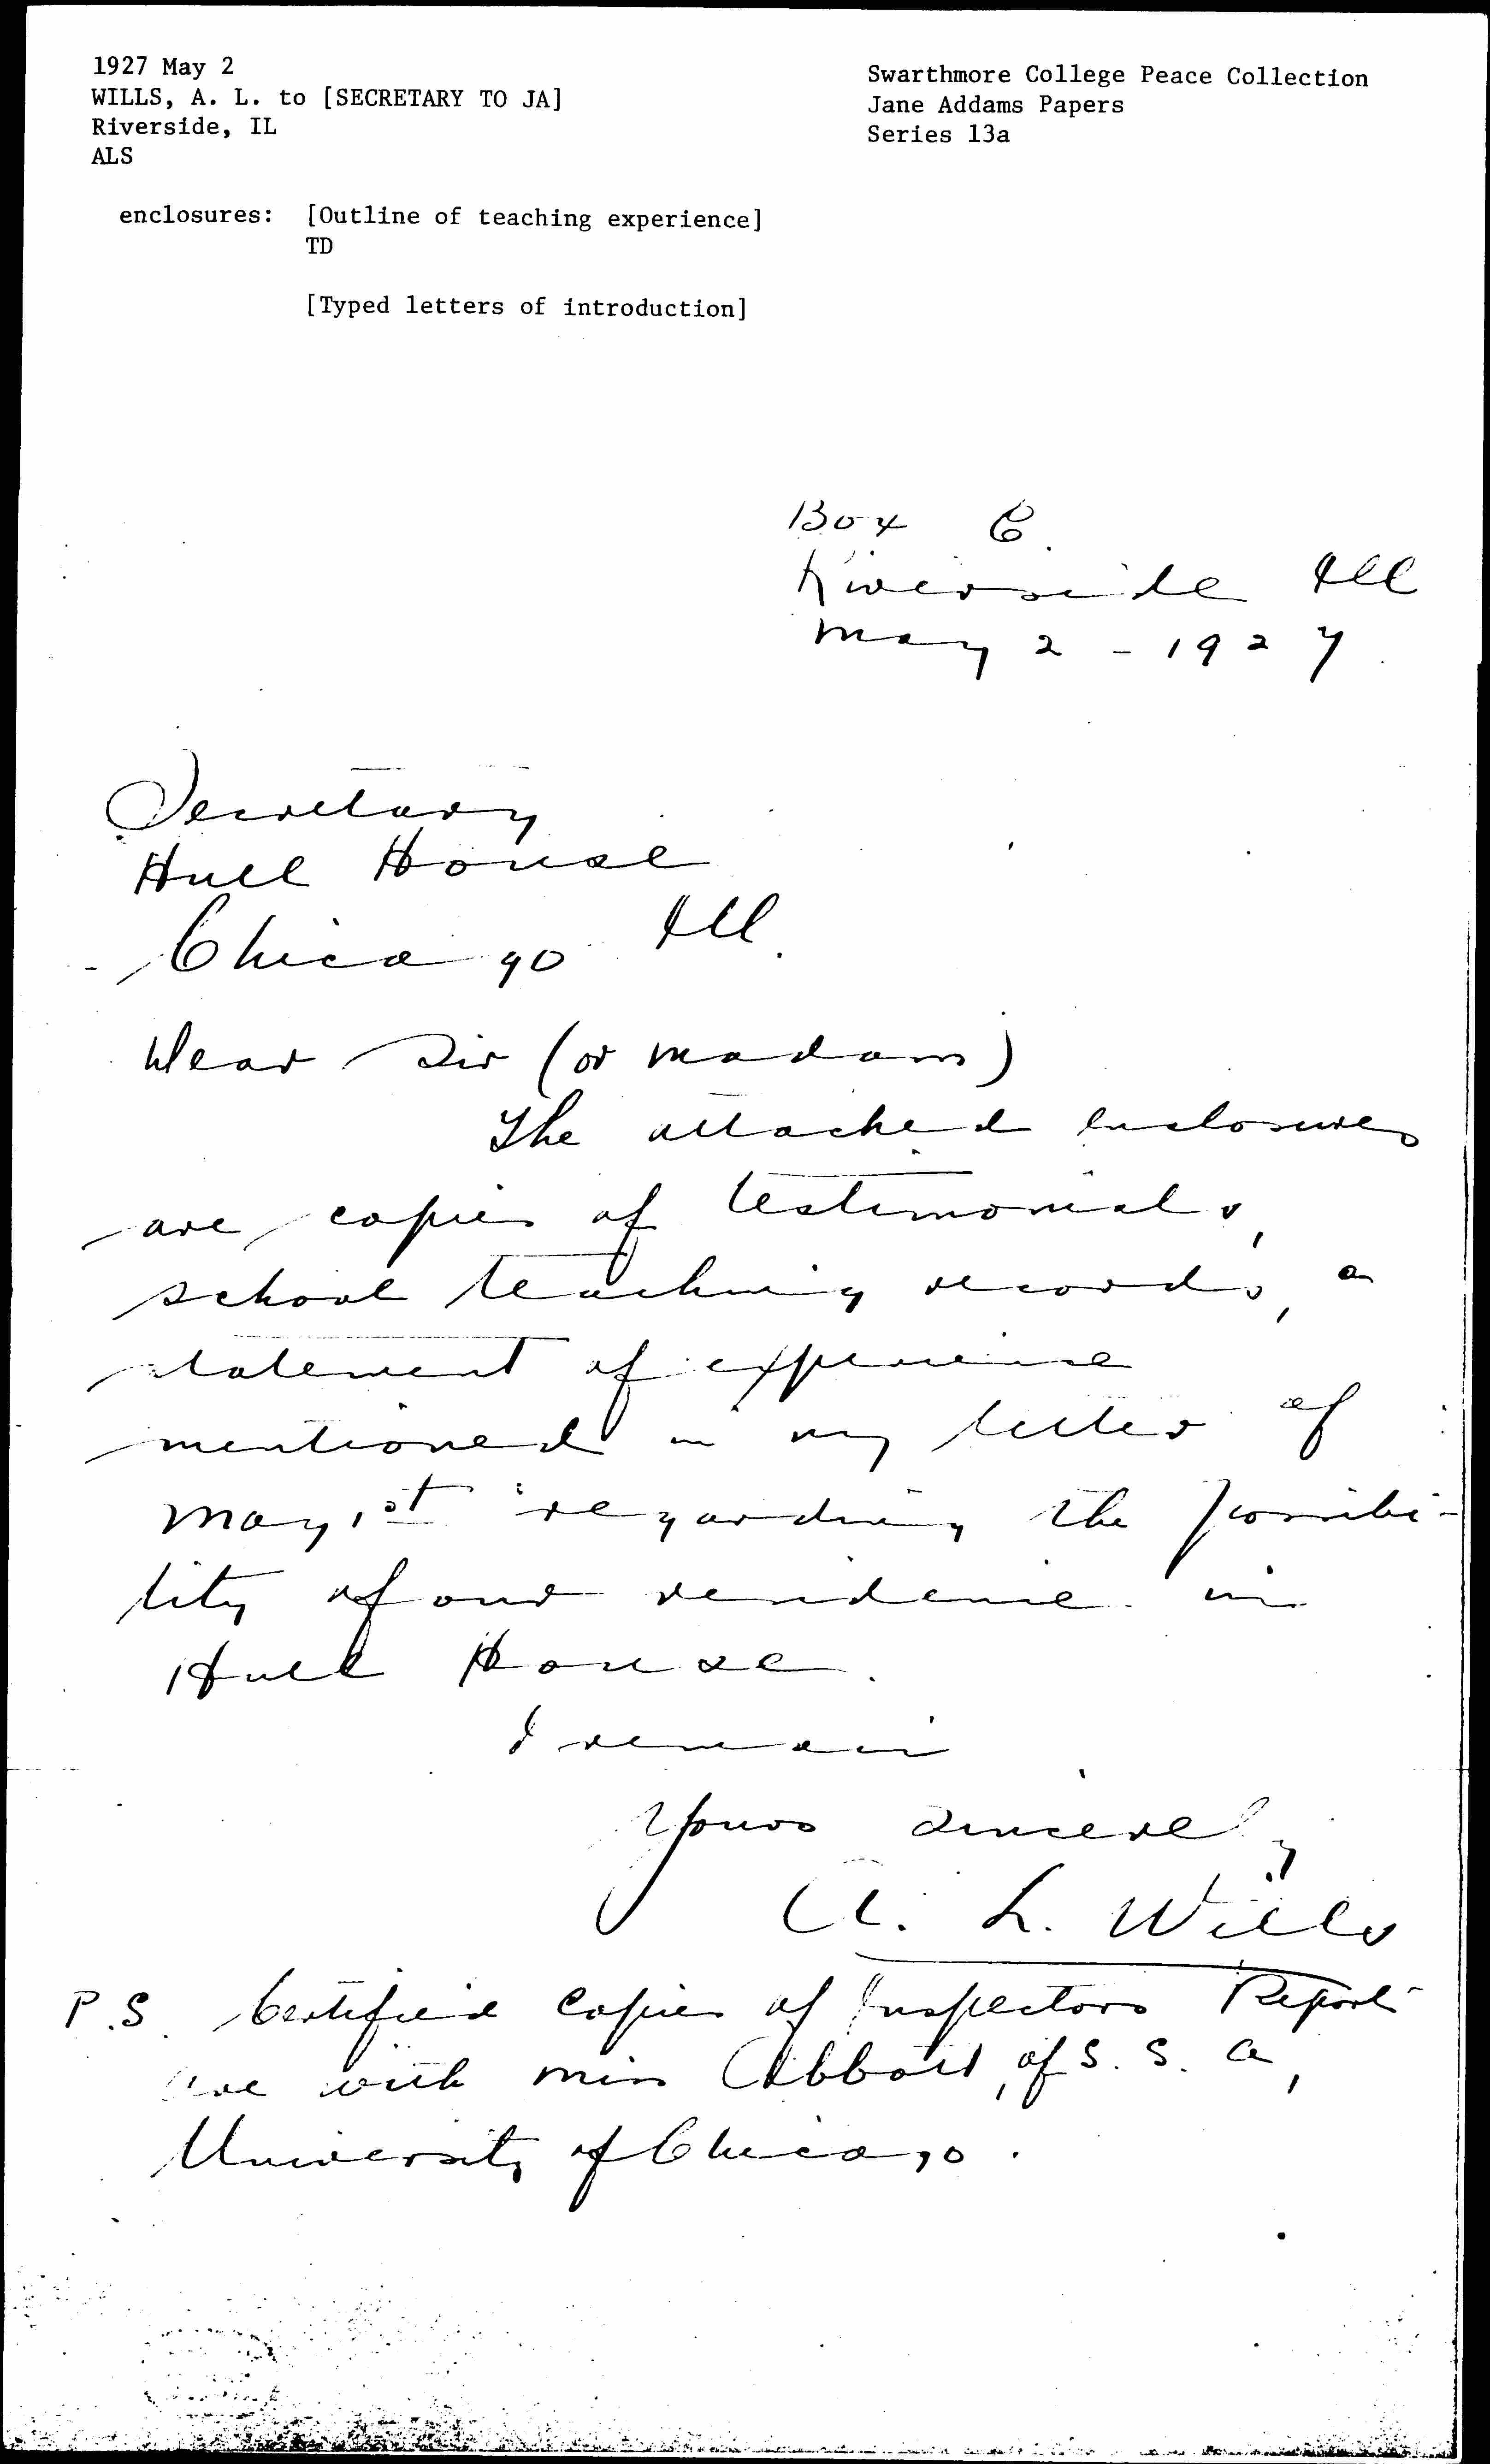 1927 May 2
WILLS, A. L. to [SECRETARY TO JA]
Riverside, IL
ALS
Swarthmore College Peace Collection
Jane Addams Papers
Series 13a
enclosures: [Outline of teaching experience]
TD
[Typed letters of introduction]
Box C.
Riverside Ill
May 2 - 1927.
Secretary
Hull House
Chicago Ill.
Dear Sir (or Madam)
The attached enclosures
are copies of testimonials,
school teaching records, a
statement of experience
mentioned in my letter of
May 1st regarding the possibi-
lity of our residence in
Hull House.
I remain
Yours sincerely
A. L. Wills
P.S. Certified copies of Inspectors Report
are with Miss Abbott, of S. S. A,
University of Chicago.